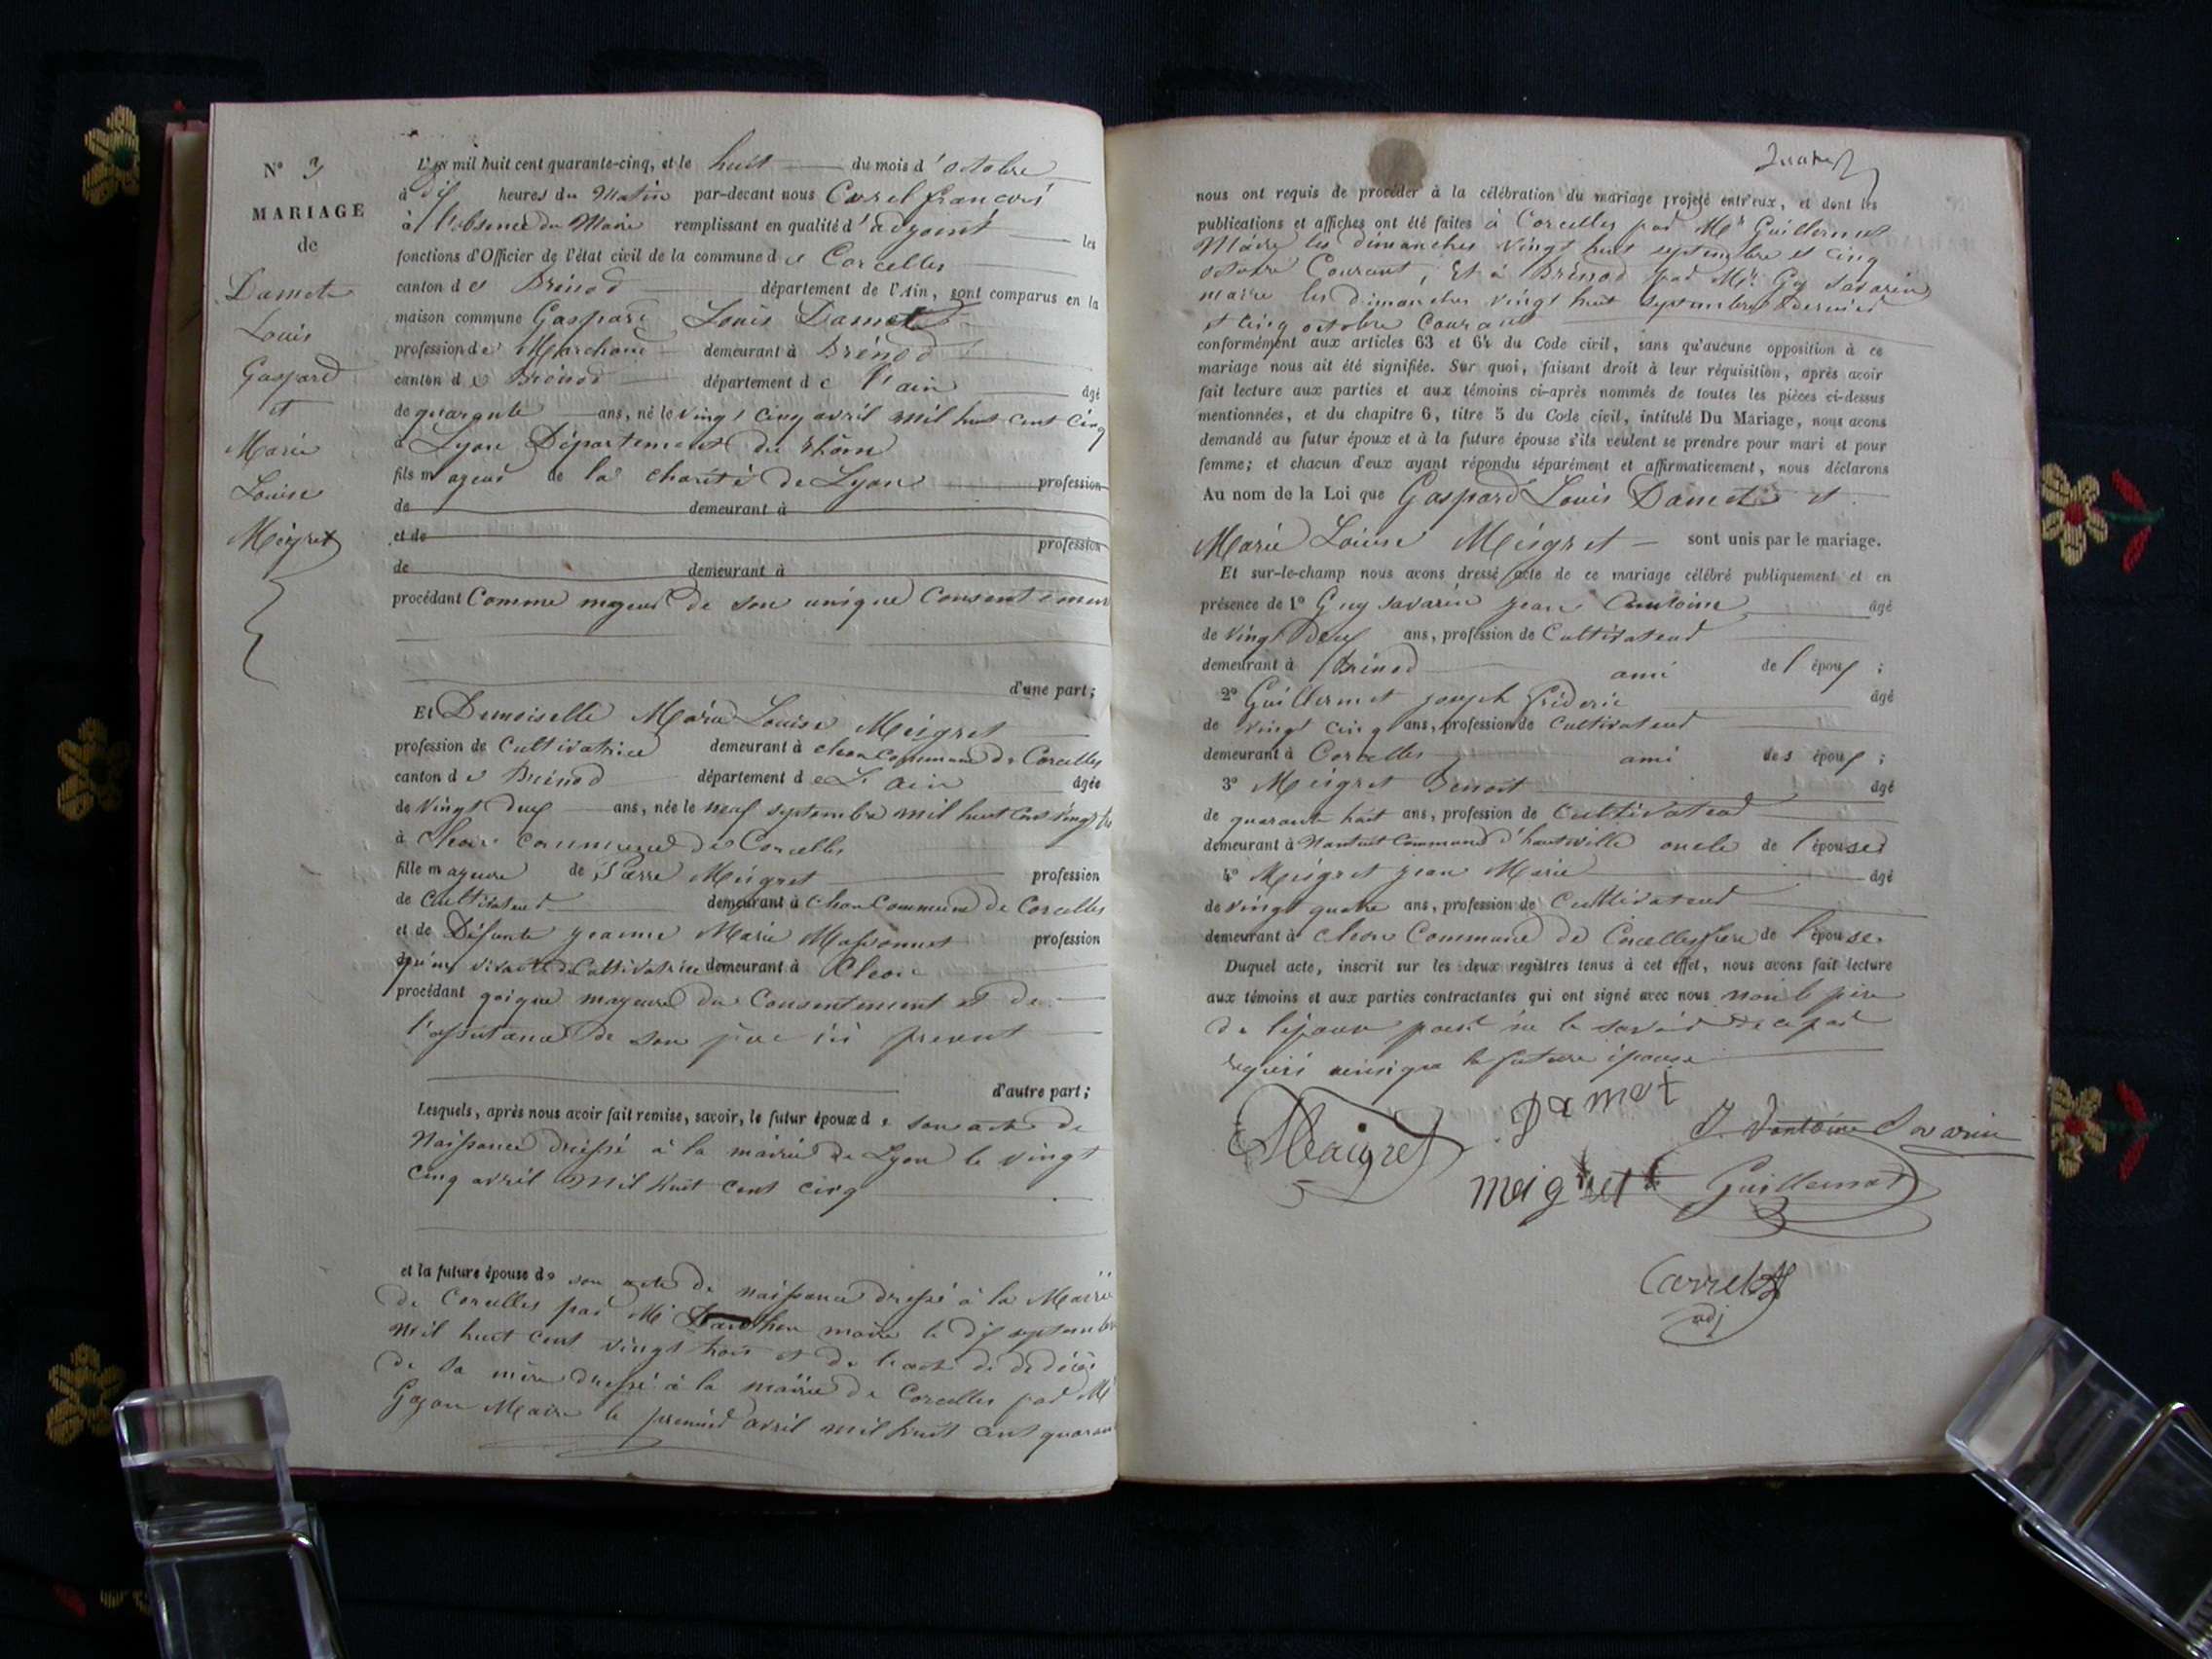 N° 3
MARIAGE
de
Damet
Louis
Gaspard
et
Marie
Louise
Meigret
L'an mil huit cent quarante-cinq, et le huit du mois d'octobre
à dix heures du Matin par-devant nous Carel francois
à l'absence du Maire remplissant en qualité d'adjoint les
fonctions d'Officier de l'état civil de la commune de Corcelles
canton de Brénod département de l'Ain, sont comparus en la
maison commune Gaspard Louis Damet
profession de Marchand demeurant à Brénod
canton de Brénod département de l'ain âgé
de quarante ans, né le vingt cinq avril mil huit cent cinq
à Lyon Département du Rhône
fils majeur de la charité de Lyon profession
de demeurant à
et de profession
de demeurant à
procédant Comme majeur de son unique Consentement
d'une part;
Et Demoiselle Marie Louise Meigret
profession de Cultivatrice demeurant à Commune de Corcelles
canton de Brénod département de L'ain âgée
de vingt deux ans, née le neuf septembre mil huit cent vingt
à commune de Corcelles
fille majeure de Pierre Meigret profession
de Cultivateur demeurant à Commune de Corcelles
et de Défunte jeanne Marie profession
de Cultivatrice demeurant à
procédant qoique majeure du Consentement et de
l'assistance de son père ici present
d'autre part;
Lesquels, après nous avoir fait remise, savoir, le futur époux de son acte de
Naissance dressé à la mairie de Lyon le vingt
cinq avril mil huit cent cinq
et la future épouse de son acte de naissance dressé à la Mairie
de Corcelles par Mr maire le dix septembre
mil huit cent vingt trois et de l'acte de de décès
de sa mère dressé à la mairie de Corcelles par Mr
Goyon Maire le premier avril mil huit cent quarante
nous ont requis de procéder à la célébration du mariage projeté entr'eux, et dont les
publications et affiches ont été faites à Corcelles par Mr Guillermet
Maire les dimanches vingt huit septembre et cinq
octobre Courant; Et à Brénod par Mr Guy Savarin
maire les dimanches vingt huit septembre dernier
et cinq octobre Courant
conformément aux articles 63 et 64 du Code civil, sans qu'aucune opposition à ce
mariage nous ait été signifiée. Sur quoi, faisant droit à leur réquisition, après avoir
fait lecture aux parties et aux témoins ci-après nommés de toutes les pièces ci-dessus
mentionnées, et du chapitre 6, titre 5 du Code civil, intitulé Du Mariage, nous avons
demandé au futur époux et à la future épouse s'ils veulent se prendre pour mari et pour
femme; et chacun d'eux ayant répondu séparément et affirmativement, nous déclarons
Au nom de la Loi que Gaspard Louis Damet et
Marie Louise Meigret sont unis par le mariage.
Et sur-le-champ nous avons dressé acte de ce mariage célébré publiquement et en
présence de 1° Guy Savarin jean Antoine âgé
de vingt deux ans, profession de Cultivateur
demeurant à Brénod ami de l'époux;
2° Guillermet joseph Fréderic âgé
de vingt cinq ans, profession de Cultivateur
demeurant à Corcelles ami des époux;
3° Meigret Benoit âgé
de quarante huit ans, profession de Cultivateur
demeurant à Nantuit Commune d'hauteville oncle de l'épouse
4° Meigret jean Marie âgé
de vingt quatre ans, profession de Cultivateur
demeurant à Commune de Corcelles frère de l'épouse.
Duquel acte, inscrit sur les deux registres tenus à cet effet, nous avons fait lecture
aux témoins et aux parties contractantes qui ont signé avec nous non le père
de l'épouse pour ne le savoir de ce par
requis ainsi que la future épouse
Damet
Meigret
J. Antoine Savarin
meigret
Guillermet
Carrel
adj